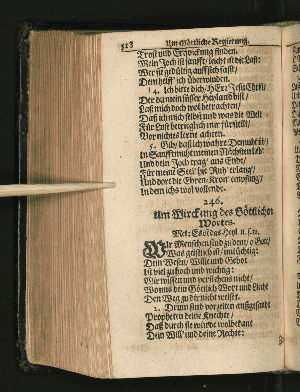 518 Um Göttliche Regierung.
Trost und Erquickung finden.
Mein Joch ist sanfft / leicht ist die Last:
Wer sie gedültig auff sich fasst /
Dem helff' ich überwinden.
4. Ich bitte dich / HErr JEsu Christ /
Der du mein süsser Heyland bist /
Laß mich doch wol betrachten /
Daß ich mich selbst und was die Welt
Für Lust betrieglich mir fürstellt /
Vor nichtes lerne achten.
5. Gib / daß ich wahre Demuht üb /
In Sanfftmuht meinen Nächsten lieb
Und dein Joch trag' ans Ende /
Für meine Seel' hie Ruh' erlang /
Und dort die Ehren-Kron' empfang /
In dem ichs wol vollende.
246.
Um Wirckung des Göttlichen
Wortes.
Mel: Es ist das Heyl u. s. w.
WIr Menschen sind zu dem / o Gott /
Was geistlich ist / untüchtig:
Dein Wesen / Wille und Gebot
Ist viel zu hoch und wichtig:
Wir wissen und verstehens nicht /
Wo uns dein Göttlich Wort und Licht
Den Weg zu dir nicht weiset.
2. Drum sind vorzeiten außgesandt
Propheten deine Knechte /
Daß durch sie würde wolbekant
Dein Will' und deine Rechte: